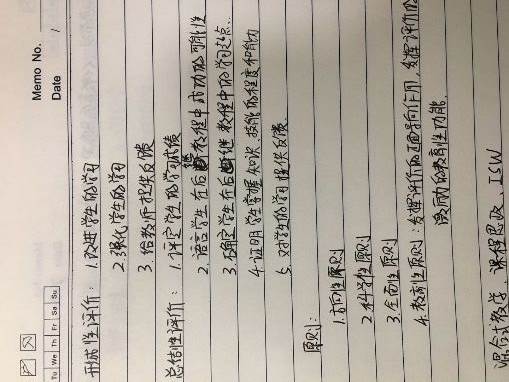 Memo No.
Date /
Tu We Th Fr Sa Su
形成性评价: 1.改进学生的学习
2.强化学生的学习
3.给教师提供反馈
总结性评价: 1.评定学生的学习成绩
2.语言学生在后继教程中成功的可能性
3.确定学生在后继教程中的学习起点.
4.证明学生掌握知识、技能的程度和能力
5.对学生的学习提供反馈
原则:
1.方向性原则
2.科学性原则
3.全面性原则
4.教育性原则:发挥评价的正面导向作用,发挥评价的
激励的教育性功能.
混合式教学、课程思政、ISW